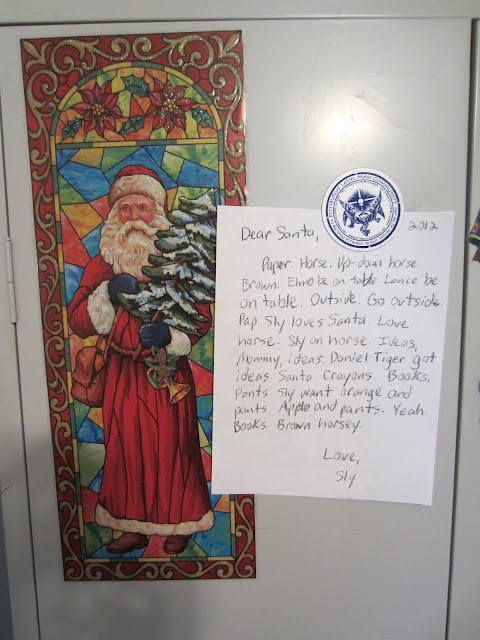 2012
Dear Santa,
Paper. Horse. Up-down horse.
Brown. Elmo be on table Lance be
on table. Outside. Go outside.
Pap. Sly loves Santa. Love
horse. Sly on horse. Ideas,
Mommy, ideas. Daniel Tiger got
ideas. Santa. Crayons. Books.
Pants. Sly want orange and
pants. Apple and pants. Yeah.
Books. Brown horsey.
Love,
Sly